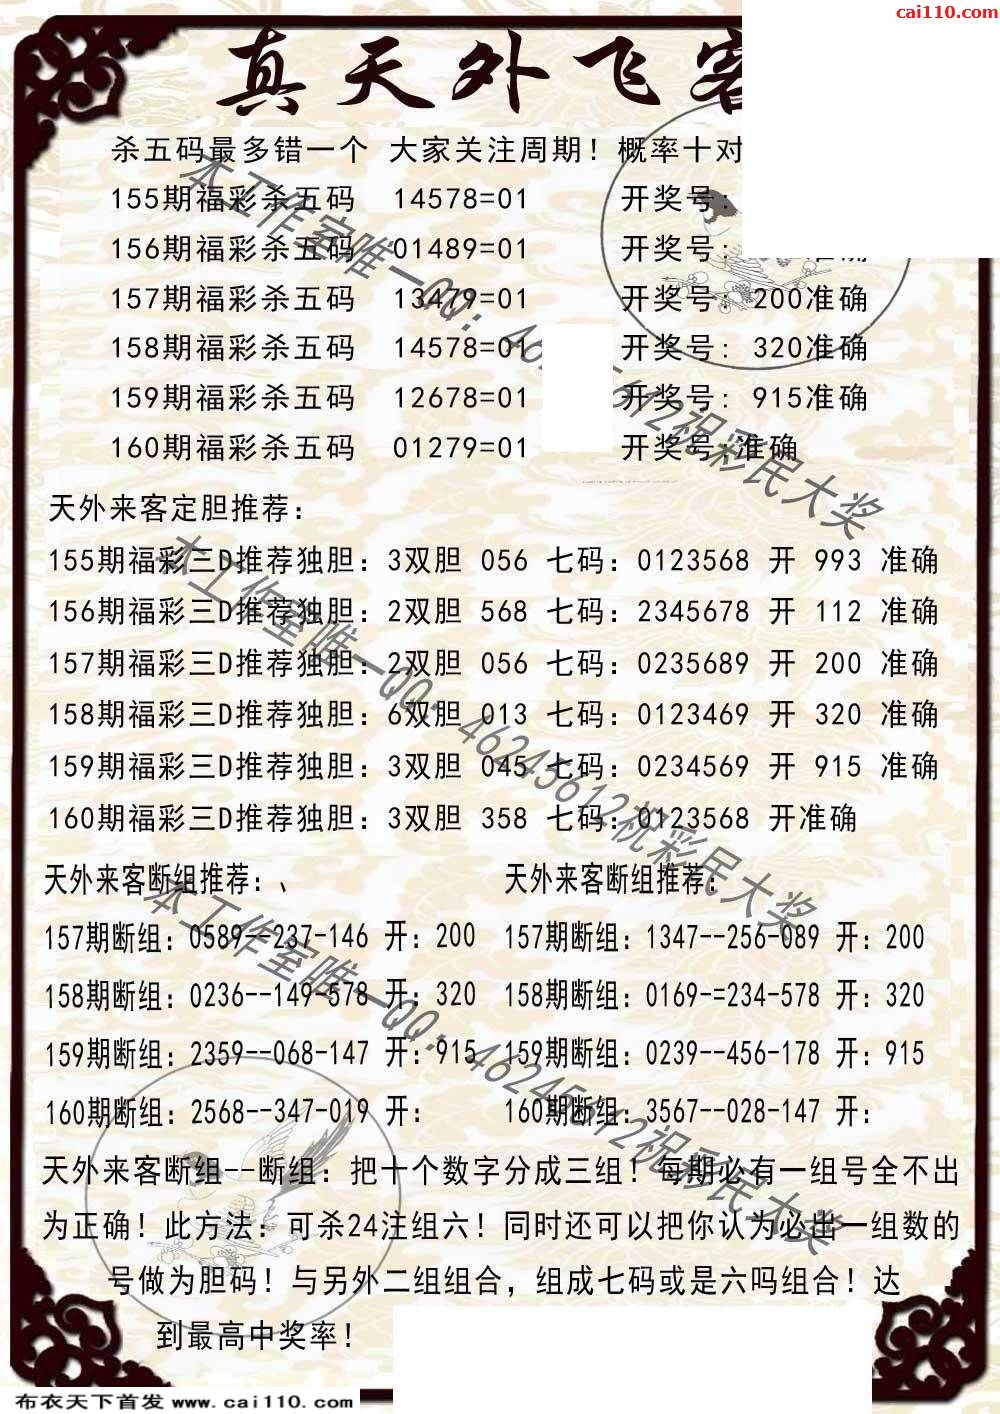 cai110.com
真天外飞客
杀五码最多错一个 大家关注周期！概率十对
155期福彩杀五码 14578=01 开奖号:
156期福彩杀五码 01489=01 开奖号: 准确
157期福彩杀五码 13479=01 开奖号: 200准确
158期福彩杀五码 14578=01 开奖号: 320准确
159期福彩杀五码 12678=01 开奖号: 915准确
160期福彩杀五码 01279=01 开奖号:准确
天外来客定胆推荐:
155期福彩三D推荐独胆: 3双胆 056 七码: 0123568 开 993 准确
156期福彩三D推荐独胆: 2双胆 568 七码: 2345678 开 112 准确
157期福彩三D推荐独胆: 2双胆 056 七码: 0235689 开 200 准确
158期福彩三D推荐独胆: 6双胆 013 七码: 0123469 开 320 准确
159期福彩三D推荐独胆: 3双胆 045 七码: 0234569 开 915 准确
160期福彩三D推荐独胆: 3双胆 358 七码: 0123568 开准确
天外来客断组推荐:、 天外来客断组推荐:
157期断组: 0589--237-146 开: 200 157期断组: 1347--256-089 开: 200
158期断组: 0236--149-578 开: 320 158期断组: 0169-=234-578 开: 320
159期断组: 2359--068-147 开: 915 159期断组: 0239--456-178 开: 915
160期断组: 2568--347-019 开: 160期断组: 3567--028-147 开:
天外来客断组--断组: 把十个数字分成三组！每期必有一组号全不出
为正确！此方法: 可杀24注组六！同时还可以把你认为必出一组数的
号做为胆码！与另外二组组合，组成七码或是六吗组合！达
到最高中奖率！
本工作室唯一QQ: 46245612祝彩民大奖
本工作室唯一QQ: 46245612祝彩民大奖
本工作室唯一QQ: 46245612祝彩民大奖
布衣天下首发 www.cai110.com